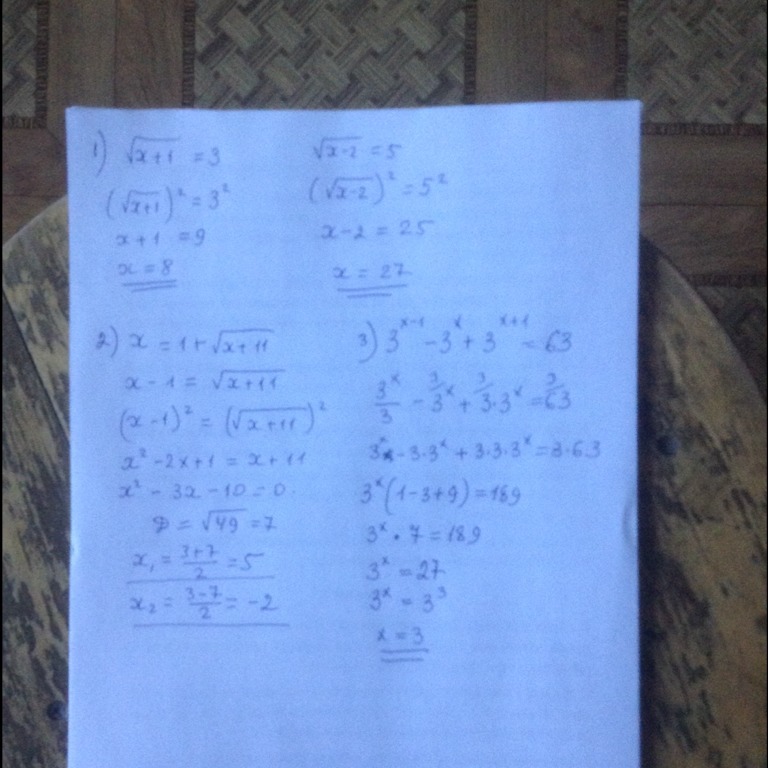 1) √(x+1) = 3
(√(x+1))² = 3²
x+1 = 9
x = 8
√(x-2) = 5
(√(x-2))² = 5²
x-2 = 25
x = 27
2) x = 1+√(x+11)
x-1 = √(x+11)
(x-1)² = (√(x+11))²
x²-2x+1 = x+11
x²-3x-10=0.
D = √49 = 7
x₁ = (3+7)/2 = 5
x₂ = (3-7)/2 = -2
3) 3^(x-1) - 3^x + 3^(x+1) = 63
3^x/3 - ³⁄3^x + ³⁄3·3^x = ³⁄63
3^x - 3·3^x + 3·3·3^x = 3·63
3^x(1-3+9) = 189
3^x · 7 = 189
3^x = 27
3^x = 3³
x = 3